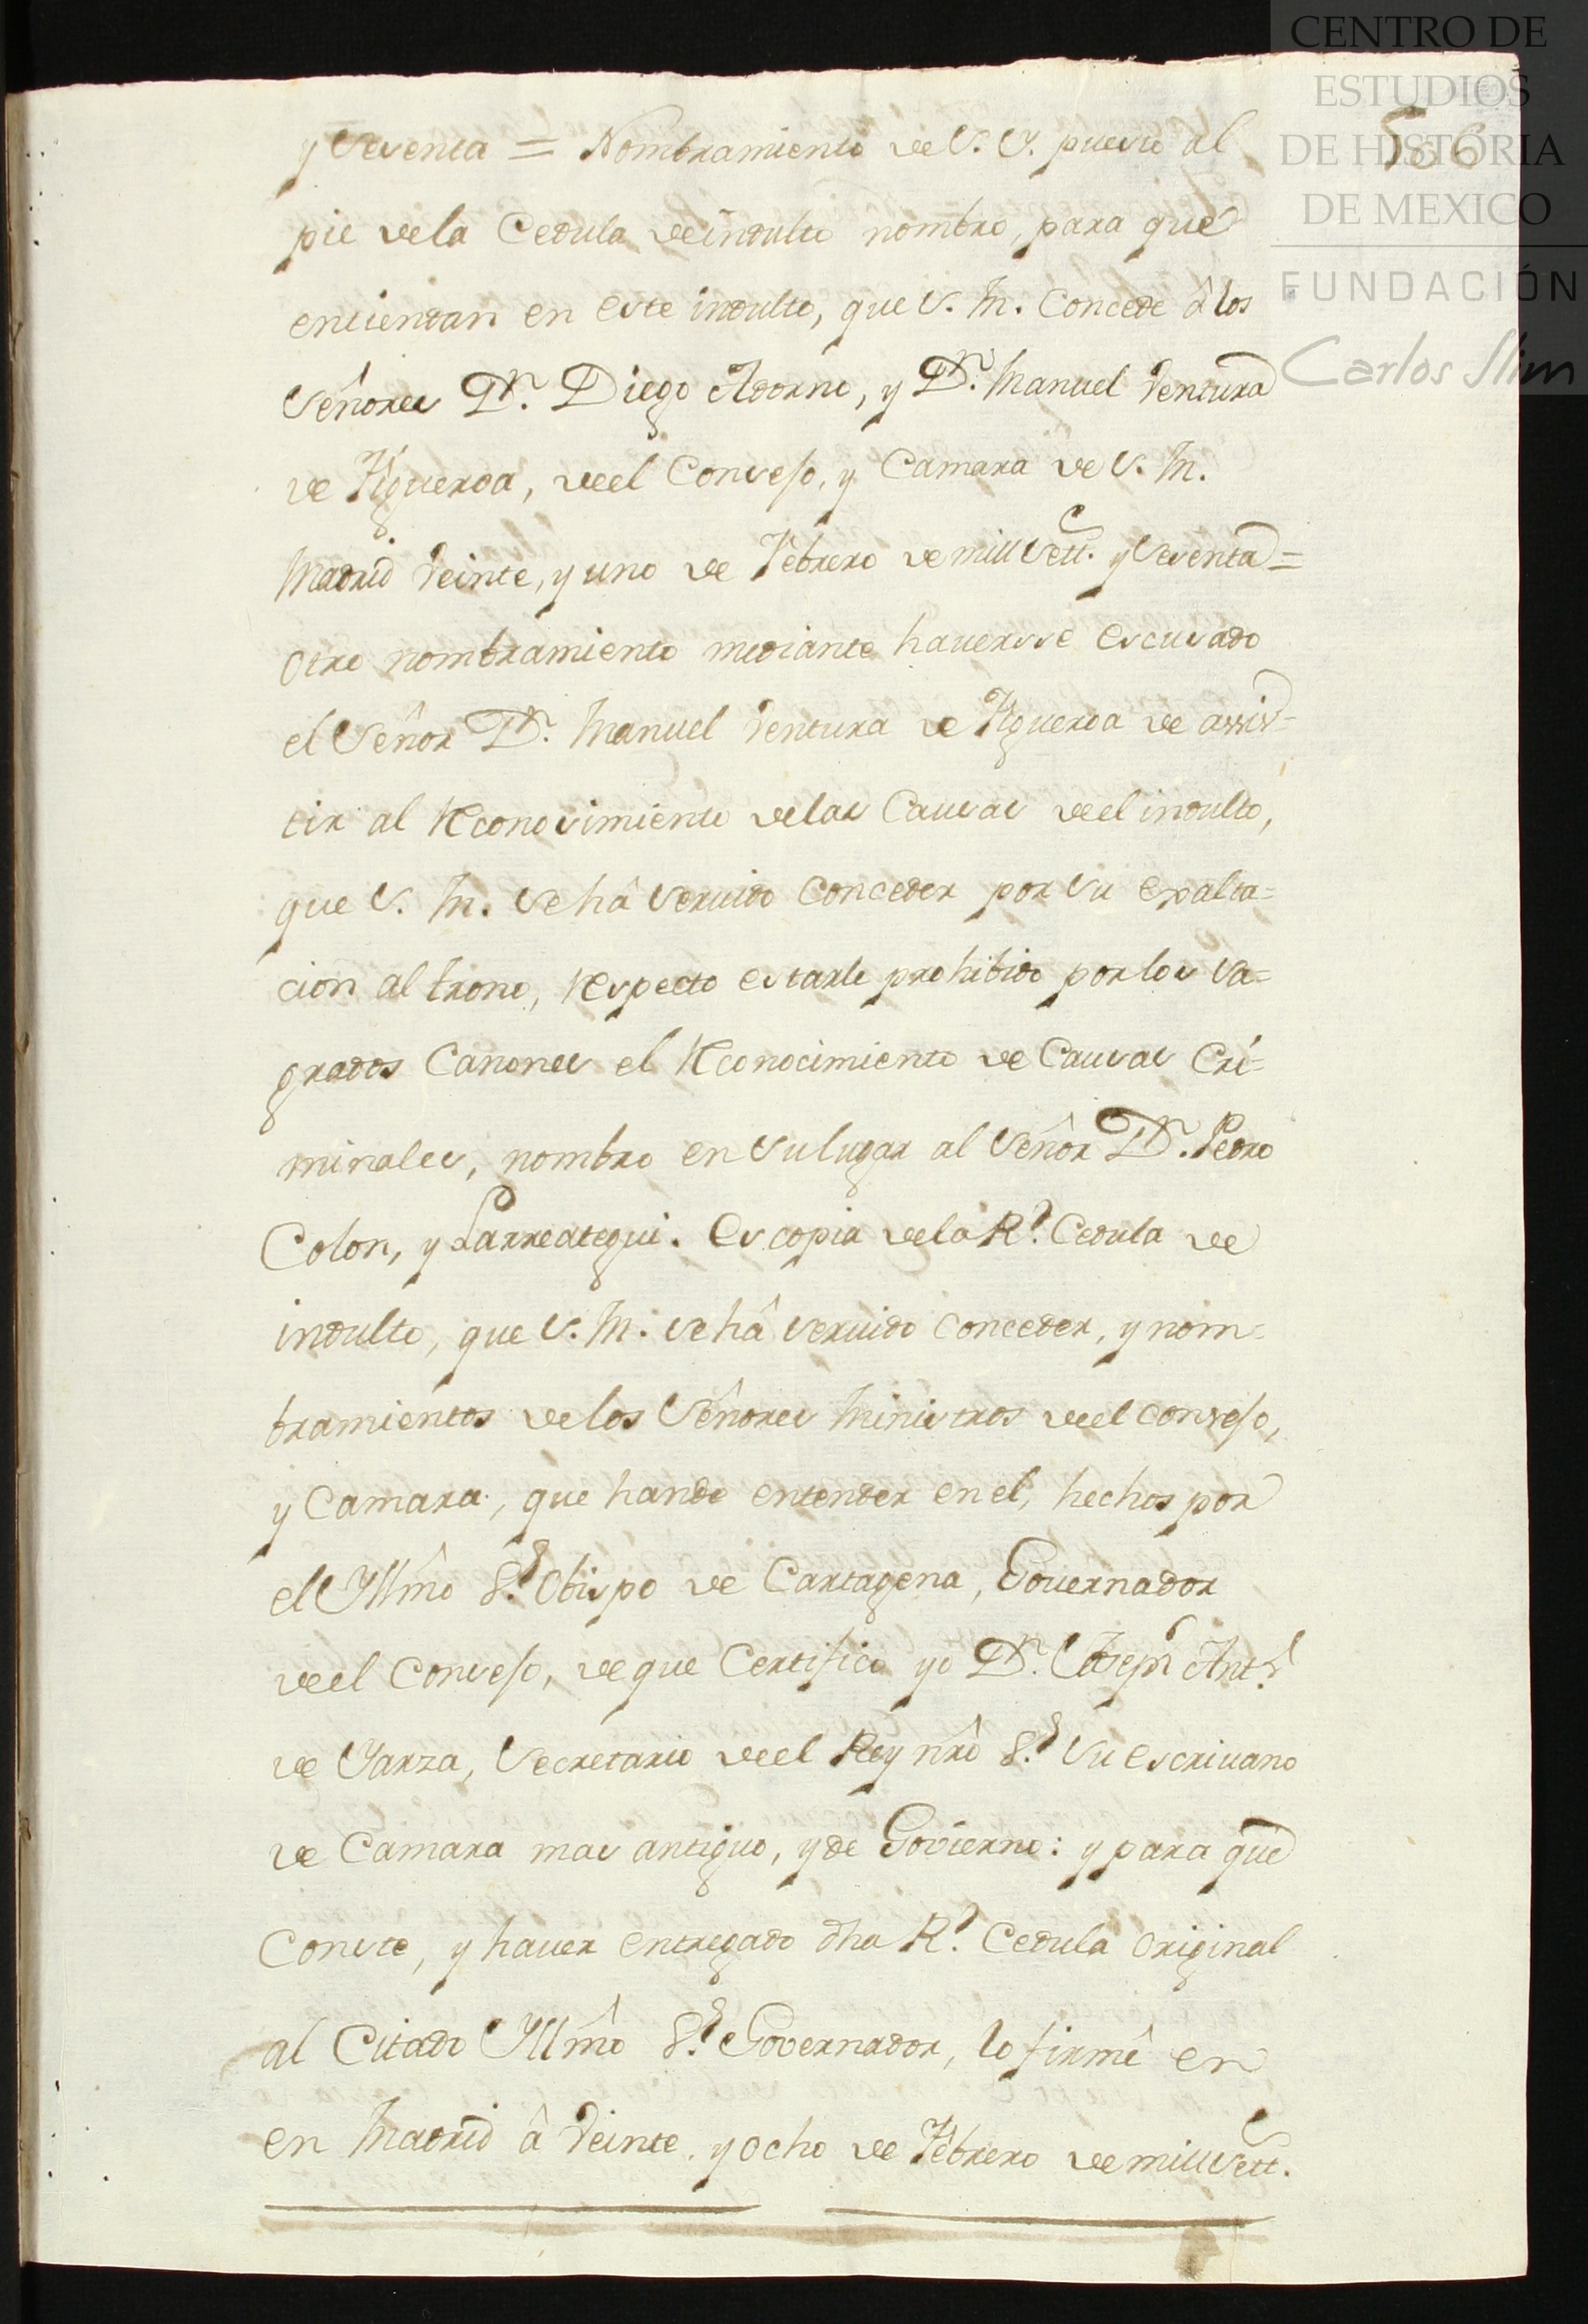 CENTRO DE
ESTUDIOS
DE HISTORIA
DE MEXICO
FUNDACIÓN
Carlos Slim
506
y sesenta = Nombramiento de S. Y. puesto al
pie dela Cedula de indulto nombro, para que
entiendan en este indulto, que S. M. Concede â los
Señores Dn. Diego Adorno, y Dn. Manuel Ventura
de Figueroa, deel Consejo, y Camara de S. M.
Madrid Veinte, y uno de Febrero de mill sett. y sesenta =
Otro nombramiento mediante haversse escusado
el Señor Dn. Manuel Ventura de Figueroa de assis-
tir al Reconocimiento delas Causas deel indulto,
que S. M. se hâ servido Conceder por su exalta=
cion al trono, respecto estarle prohibido por los Sa=
grados Canones el Reconocimiento de Causas Cri=
minales, nombro en su lugar al Señor Dn. Pedro
Colon, y Larreategui. Es copia dela Rl. Cedula de
indulto, que S. M. se hâ servido Conceder, y nom=
bramientos delos Señores Ministros deel consejo,
y Camara, que hande entender en el, hechos por
el Yllmô Sr. Obispo de Cartagena, Governador
deel Consejo, de que Certifico yo Dn. Joseph Antº.
de Yarza, Secretario deel Rey nrô Sr. su escrivano
de Camara mas antiguo, y de Govierno: y para que
Conste, y haver entregado dha Rl. Cedula Original
al Citado Yllmô Sr. Governador, lo firmê en
en Madrid â Veinte, y ocho de Febrero de mill sett.